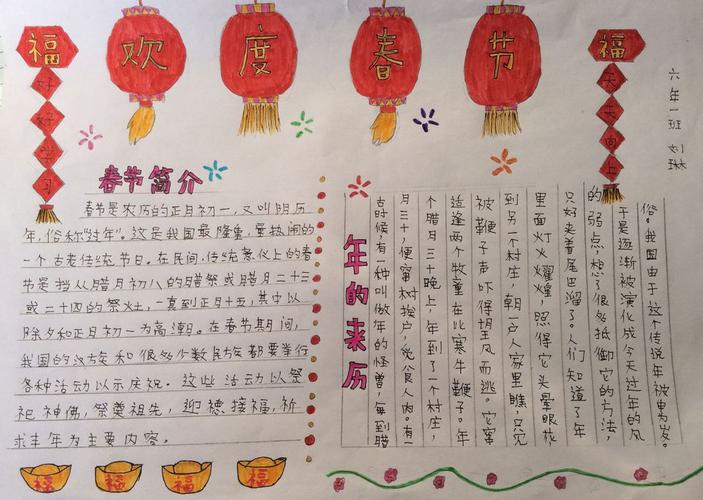 欢度春节
福
好好学习
福
天天向上
六年一班 刘琳
春节简介
春节是农历的正月初一，又叫阴历
年，俗称"过年"。这是我国最隆重，最热闹的
一个古老传统节日。在民间，传统意义上的春
节是指从腊月初八的腊祭或腊月二十三
或二十四的祭灶，一直到正月十五，其中以
除夕和正月初一为高潮。在春节期间，
我国的汉族和很多少数民族都要举行
各种活动以示庆祝。这些活动以祭
祀神佛，祭奠祖先，迎禧接福，祈
求丰年为主要内容。
年的来历
古时候有一种叫做年的怪兽，每到腊
月三十，便窜村挨户，觅食人肉。有一
个腊月三十晚上，年到了一个村庄，
适逢两个牧童在比寒牛鞭子。年
被鞭子声吓得望风而逃。它窜
到另一个村庄，朝一户人家里瞧，只见
里面灯火耀煌，照得它头晕眼花，
只好夹着尾巴溜了。人们知道了年
的弱点，想了很多抵御它的方法，
于是逐渐被演化成今天过年的风
俗。我国由于这个传说年被串为岁。
福
福
福
福